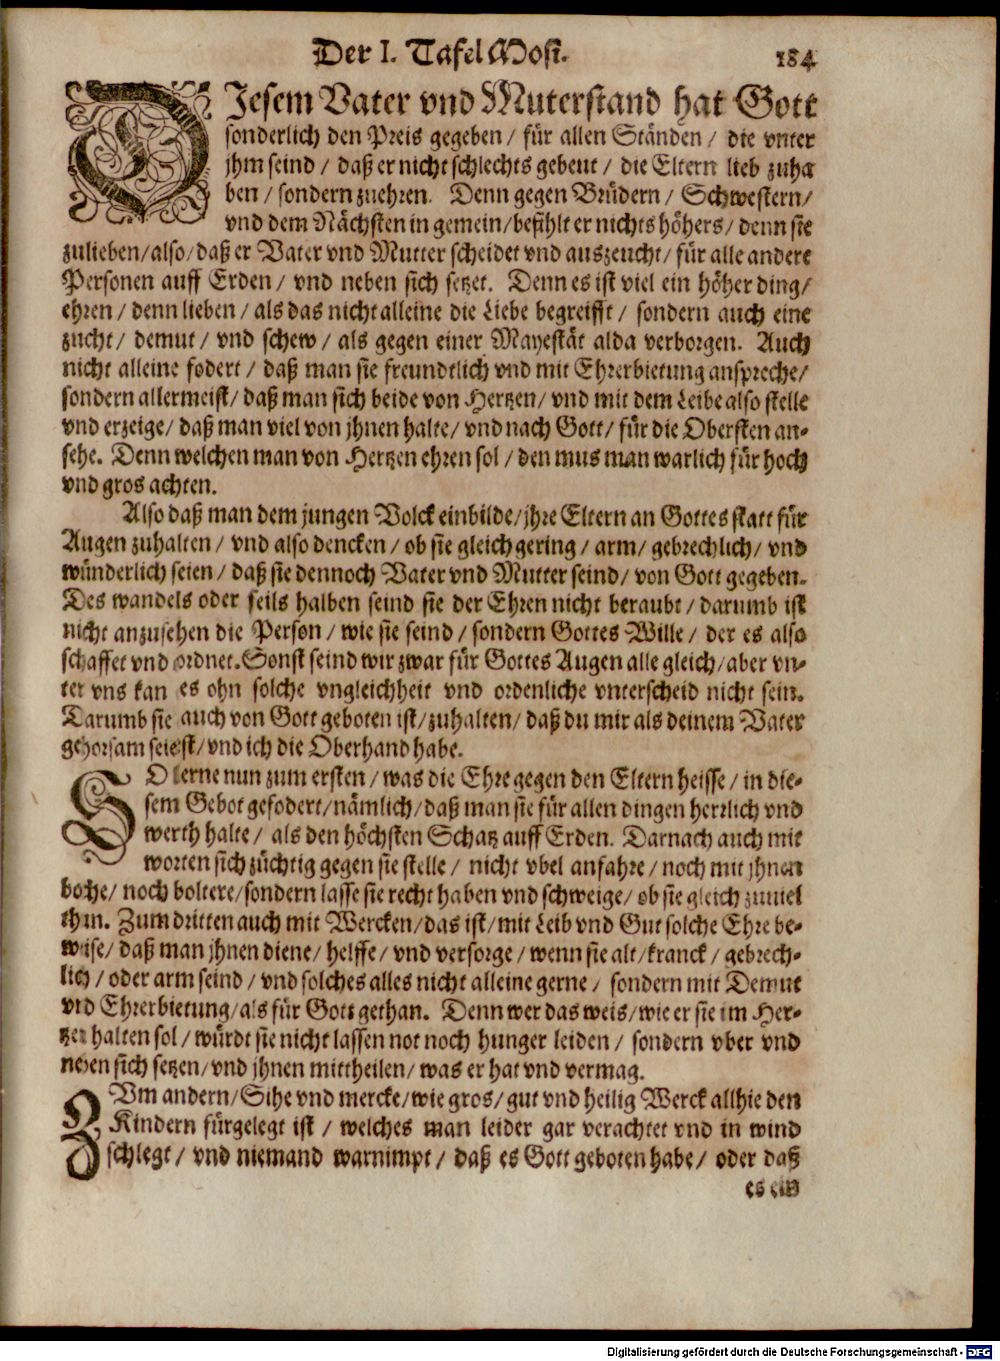 Der I. Tafel Mosi. 184
DJesem Vater vnd Muterstand hat Gott
sonderlich den Preis gegeben / für allen Ständen / die vnter
jhm seind / daß er nicht schlechts gebeut / die Eltern lieb zuha
ben / sondern zuehren. Denn gegen Brüdern / Schwestern /
vnd dem Nächsten in gemein / befihlt er nichts höhers / denn sie
zulieben / also / daß er Vater vnd Mutter scheidet vnd auszeucht / für alle andere
Personen auff Erden / vnd neben sich setzet. Denn es ist viel ein höher ding /
ehren / denn lieben / als das nicht alleine die Liebe begreifft / sondern auch eine
zucht / demut / vnd schew / als gegen einer Mayestät alda verborgen. Auch
nicht alleine fodert / daß man sie freundtlich vnd mit Ehrerbietung anspreche /
sondern allermeist / daß man sich beide von Hertzen / vnd mit dem Leibe also stelle
vnd erzeige / daß man viel von jhnen halte / vnd nach Gott / für die Obersten an-
sehe. Denn welchen man von Hertzen ehren sol / den mus man warlich für hoch
vnd gros achten.
Also daß man dem jungen Volck einbilde / jhre Eltern an Gottes statt für
Augen zuhalten / vnd also dencken / ob sie gleich gering / arm / gebrechlich / vnd
wünderlich seien / daß sie dennoch Vater vnd Mutter seind / von Gott gegeben.
Des wandels oder feils halben seind sie der Ehren nicht beraubt / darumb ist
nicht anzusehen die Person / wie sie seind / sondern Gottes Wille / der es also
schaffet vnd ordnet. Sonst seind wir zwar für Gottes Augen alle gleich / aber vn-
ter vns kan es ohn solche vngleichheit vnd ordenliche vnterscheid nicht sein.
Darumb sie auch von Gott geboten ist / zuhalten / daß du mir als deinem Vater
gehorsam seiest / vnd ich die Oberhand habe.
SO lerne nun zum ersten / was die Ehre gegen den Eltern heisse / in die-
sem Gebot gefodert / nämlich / daß man sie für allen dingen herrlich vnd
werth halte / als den höchsten Schatz auff Erden. Darnach auch mit
worten sich züchtig gegen sie stelle / nicht vbel anfahre / noch mit jhnen
boche / noch boltere / sondern lasse sie recht haben vnd schweige / ob sie gleich zuuiel
thun. Zum dritten auch mit Wercken / das ist / mit Leib vnd Gut solche Ehre be-
weise / daß man jhnen diene / helffe / vnd versorge / wenn sie alt / kranck / gebrech-
lich / oder arm seind / vnd solches alles nicht alleine gerne / sondern mit Demut
vnd Ehrerbietung / als für Gott gethan. Denn wer das weis / wie er sie im Her-
tzen halten sol / würdt sie nicht lassen not noch hunger leiden / sondern vber vnd
neben sich setzen / vnd jhnen mittheilen / was er hat vnd vermag.
ZVm andern / Sihe vnd mercke / wie gros / gut vnd heilig Werck allhie den
Kindern fürgelegt ist / welches man leider gar verachtet vnd in wind
schlegt / vnd niemand warnimpt / daß es Gott geboten habe / oder daß
es ein
Digitalisierung gefördert durch die Deutsche Forschungsgemeinschaft - DFG